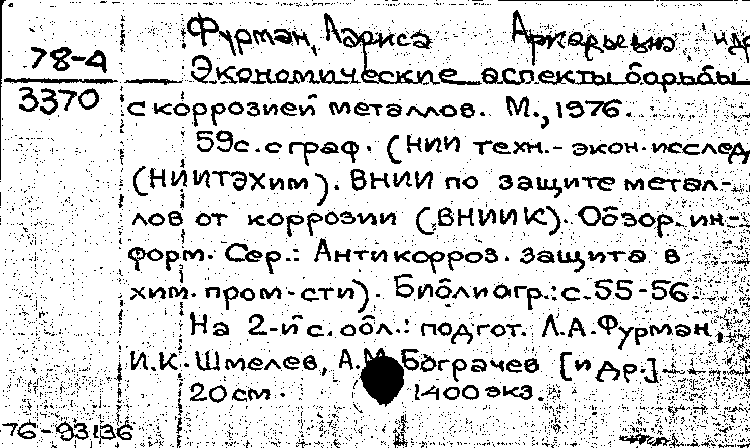 78-4
3370
Фурман, Лариса Аркадьевна и др
Экономические аспекты борьбы
с коррозией металлов. М., 1976.
59с. с граф. (НИИ техн.-экон. исслед
(НИИТЭХим). ВНИИ по защите метал-
лов от коррозии (ВНИИК). Обзор. ин-
форм. Сер.: Антикорроз. защита в
хим. пром-сти). Библиогр.: с. 55-56.
На 2-й с. обл.: подгот. Л.А. Фурман,
И.К. Шмелев, А.М. Бограчев [и др.]
20 см. 1400 экз.
76-93136